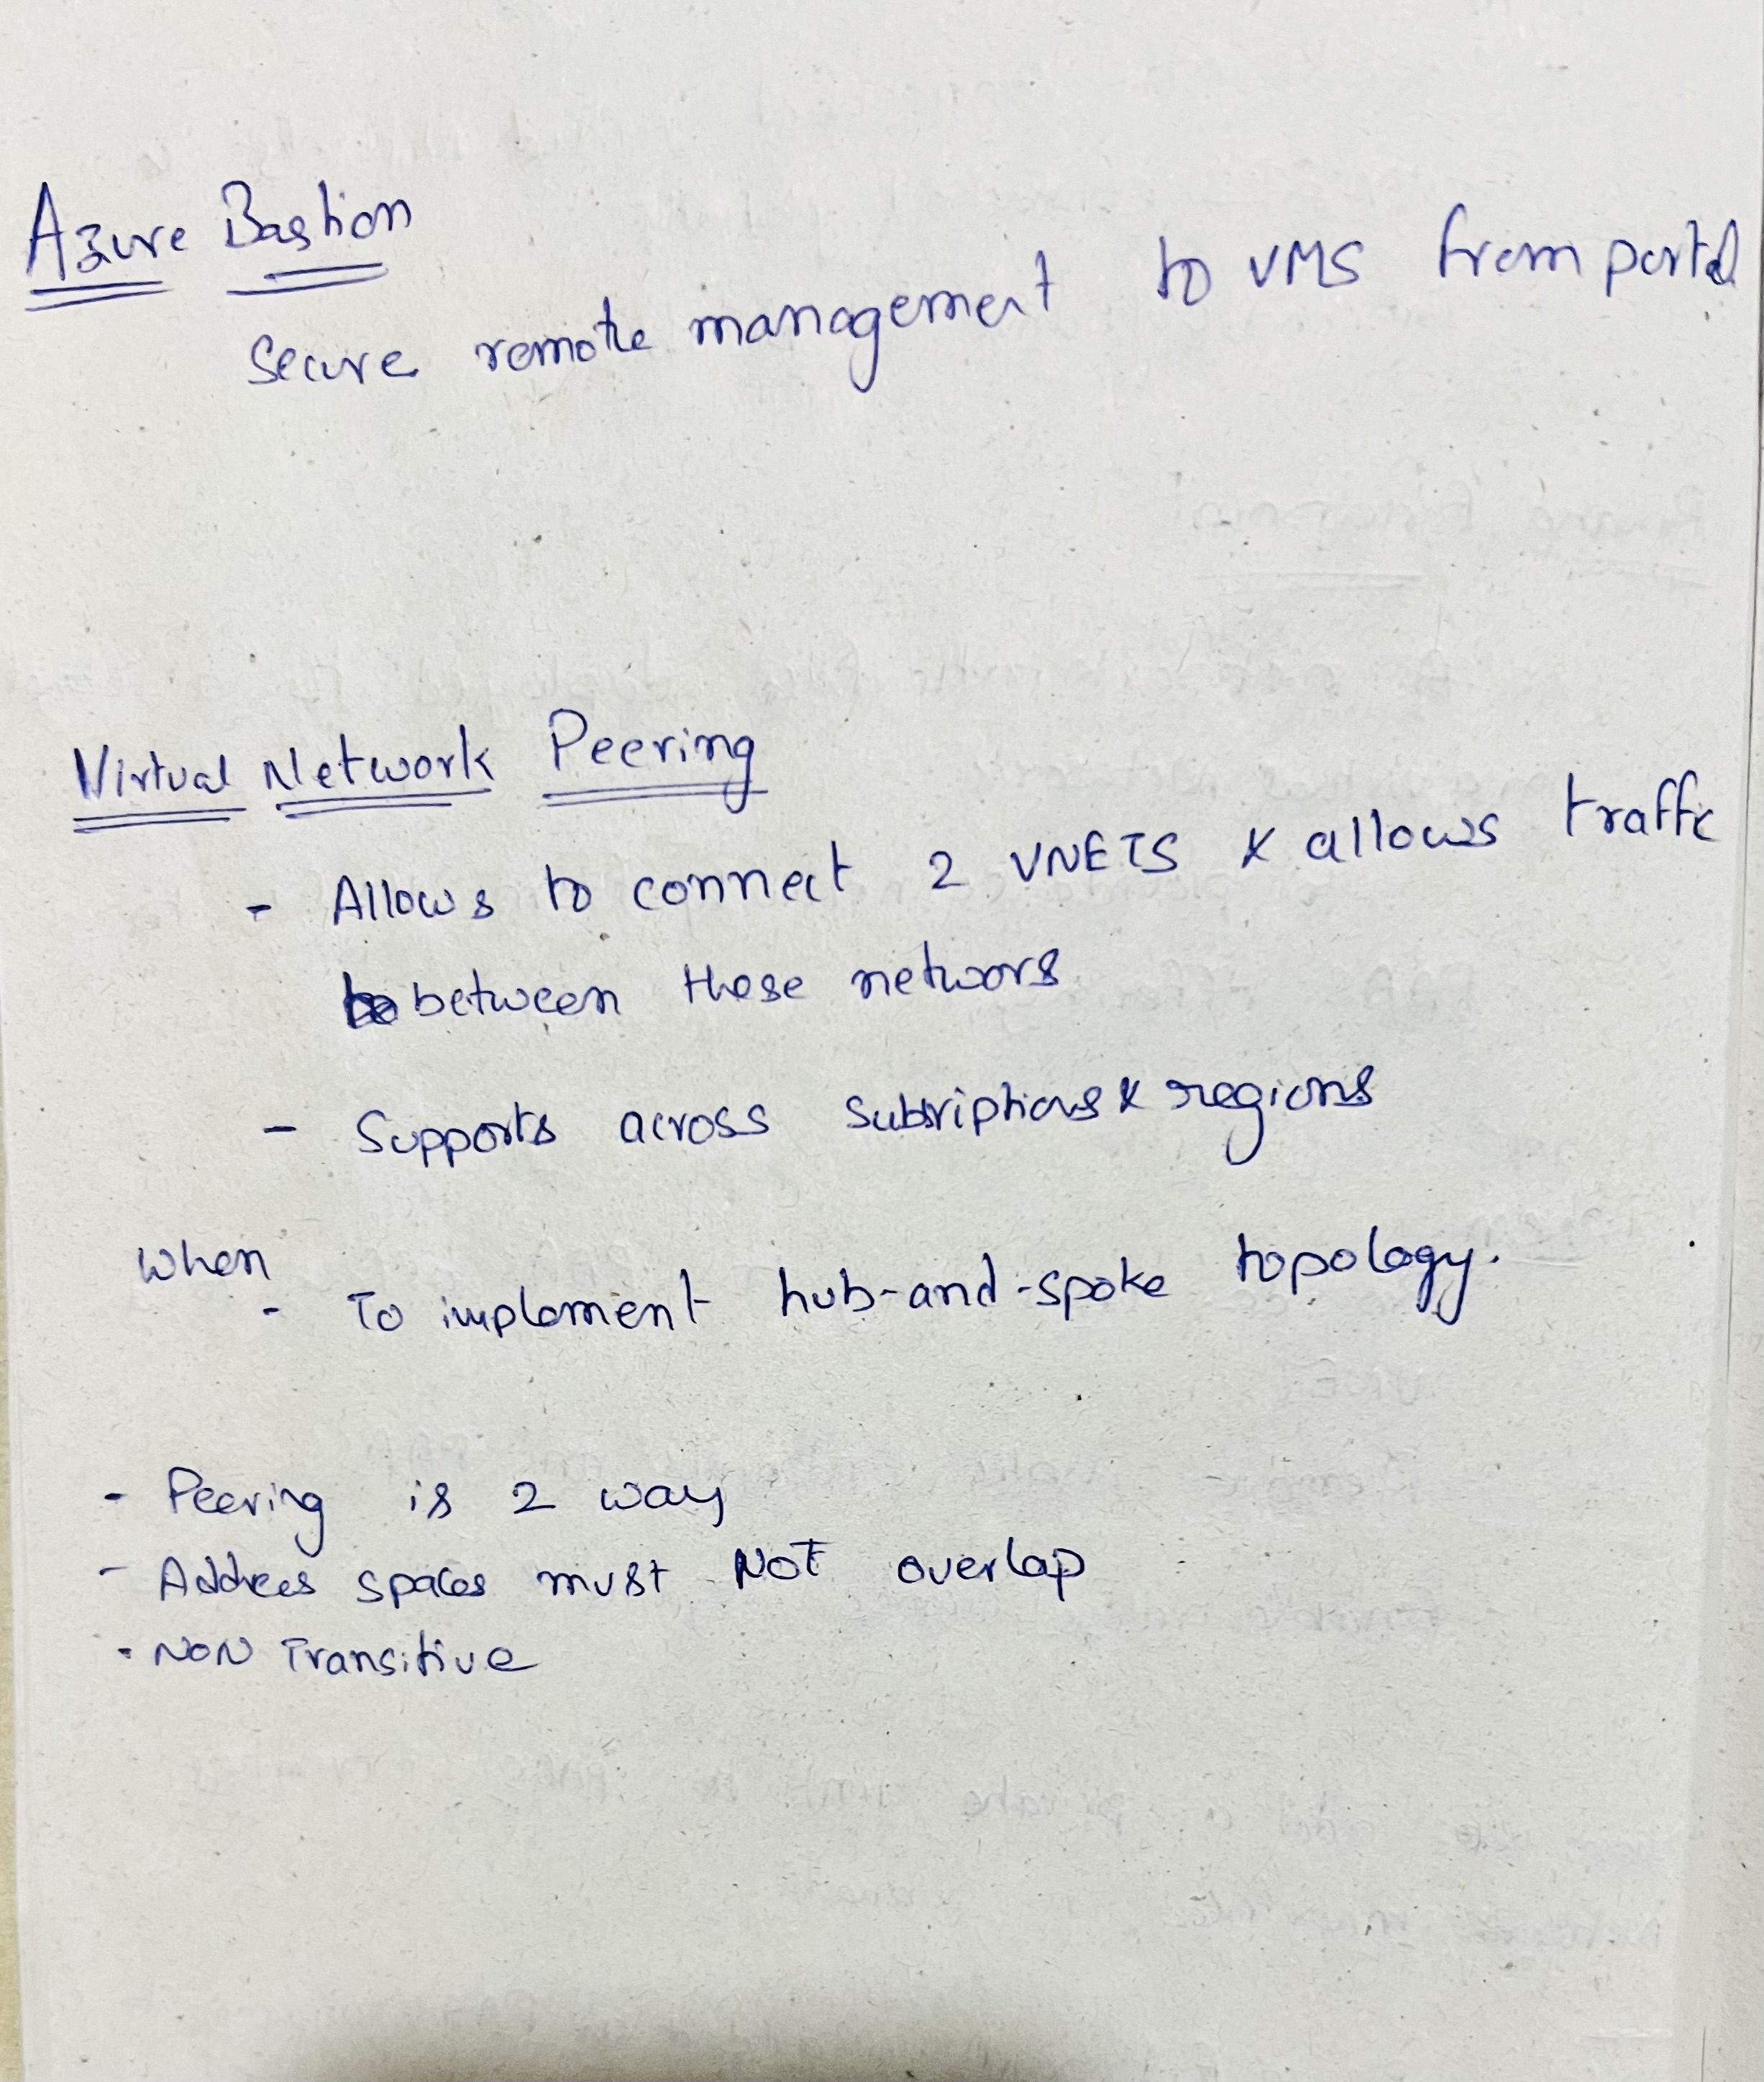 Azure Bastion
Secure remote management to VMS from portal
Virtual Network Peering
- Allows to connect 2 VNETS & allows traffic
between these networs
- Supports across subsriptions & regions
When
- To implement hub-and-spoke topology.
- Peering is 2 way
- Address spaces must NOT overlap
- NON Transitive